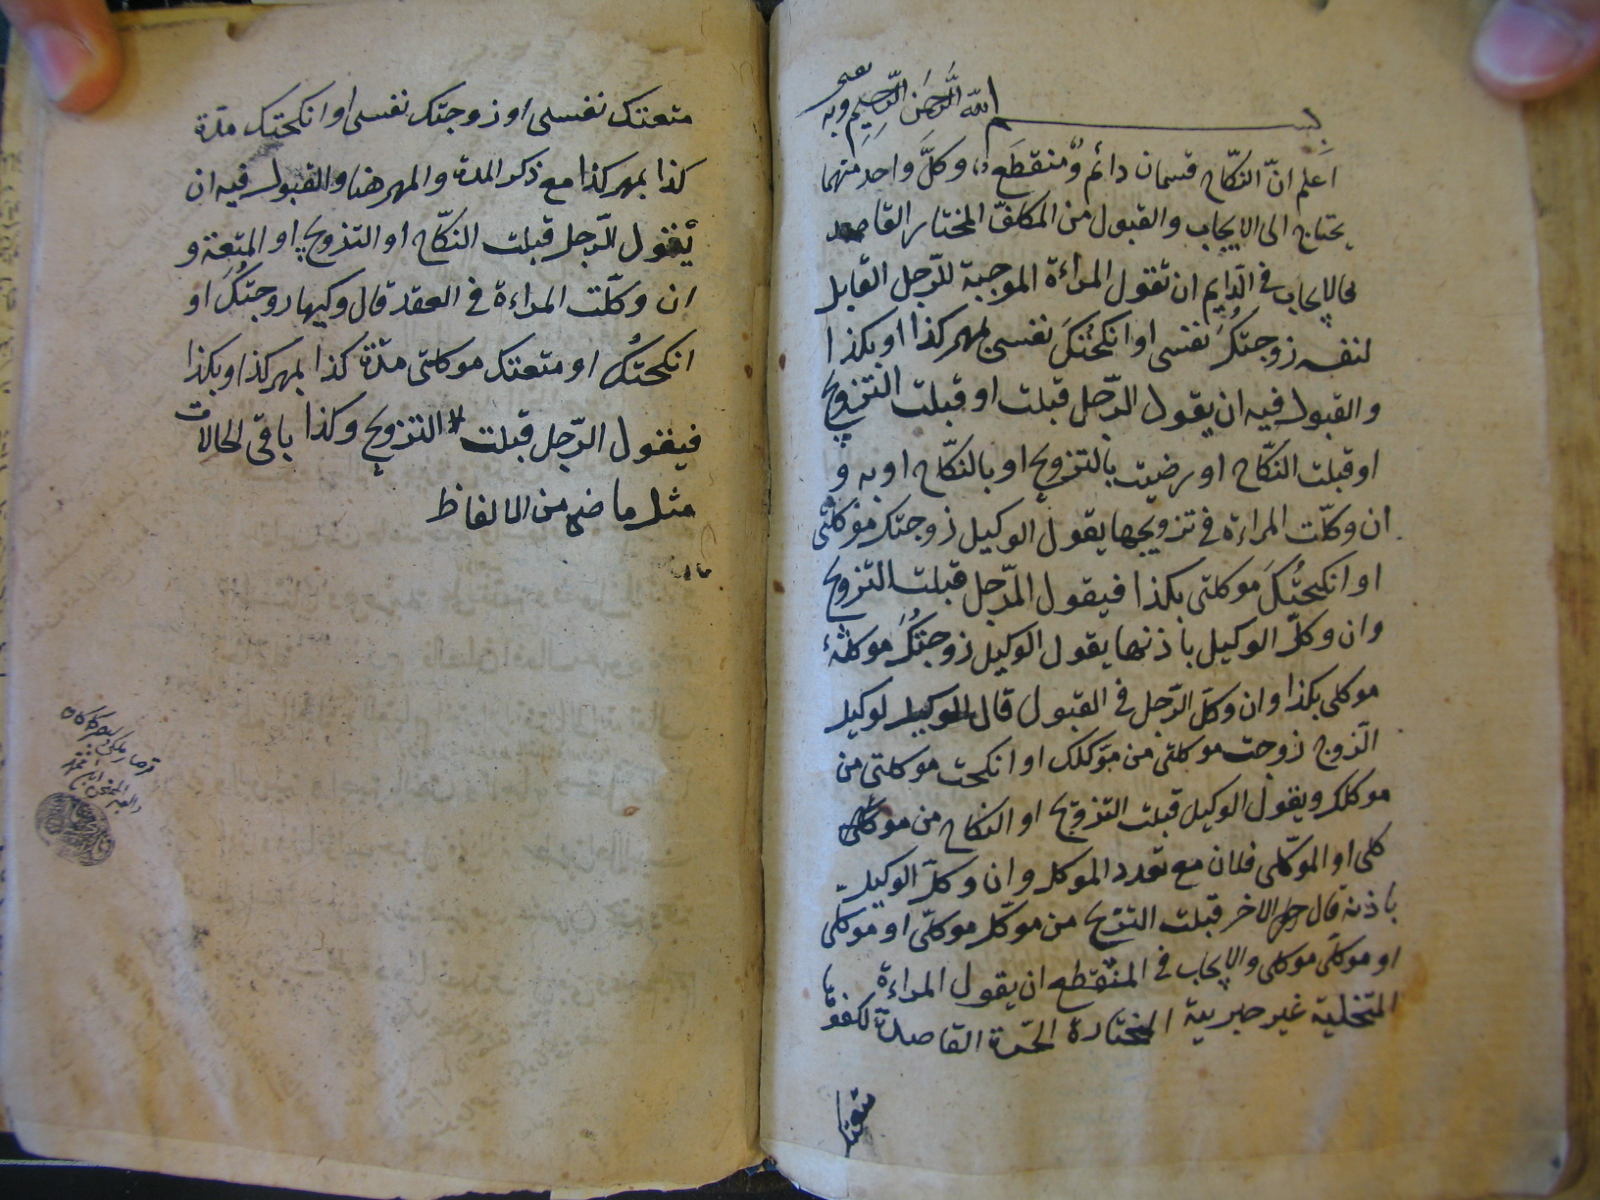 بسم الله الرحمن الرحيم وبه
اعلم انّ النكاح قسمان دائم ومنقطع وكلّ واحد منهما
يحتاج الى الايجاب والقبول من المكلف المختار القاصد
فالايجاب فى الدّايم ان تقول المراءة الموجبة للرّجل القابل
لنفسه زوجتكَ نفسى او انكحتكَ نفسى بمهر كذا او بكذا
والقبول فيه ان يقول الرّجل قبلت او قبلت التزويج
او قبلت النكاح او رضيت بالتزويج او بالنكاح او به و
ان وكلّت المراءة فى تزويجها يقول الوكيل زوجتك موكلتى
او انكحتُكَ موكلتى بكذا فيقول الرّجل قبلت التزويج
وان وكلّ الوكيل باذنها يقول الوكيل زوجتكُ موكلة
موكلى بكذا وان وكل الرّجل فى القبول قال لوكيل
الزوج زوجت موكلتى من موكلك او انكحت موكلتى من
موكلك ويقول الوكيل قبلت التزويج او النكاح من موكلى
كلى او الموكلى فلان مع تعدد الموكل وان وكلّ الوكيل
باذنه قال الاخر قبلت التزويج من موكل موكلى او موكلى
او موكلى موكلى والايجاب فى المنقطع ان يقول المراءة
المتخلية غير المختارة الحرة القاصدة
متعتك
متعتك نفسى او زوجتك نفسى او انكحتك مدة
كذا بمهر كذا مع ذكر المدة والمهر هنا والقبول فيه ان
يقول الرّجل قبلت النكاح او التزويج او المتعة و
ان وكلّت المراءة فى العقد قال وكيها زوجتكُ او
انكحتكُ او متعتك موكلتى مدة كذا بمهر كذا او بكذا
فيقول الرّجل قبلت التزويج وكذا باقى الحالات
مثل ما من الالفاظ